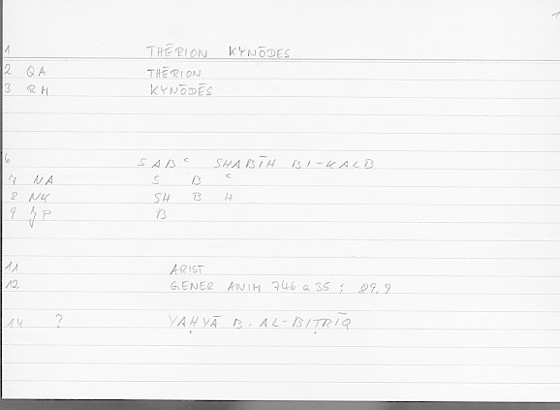 1 THĒRION KYNŌDES
2 QA THĒRION
3 RM KYNŌDĒS
6 SABʿ SHABĪH BI-KALB
7 NA S B ʿ
8 NK SH B H
9 JP B
11 ARIST
12 GENER ANIM 746 a 35 ; 89.9
14 ? YAḤYĀ B. AL-BIṬRĪQ